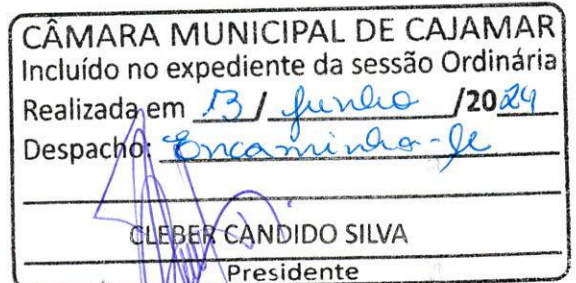 CÂMARA MUNICIPAL DE CAJAMAR
Incluído no expediente da sessão Ordinária
Realizada em 13 / junho /2024
Despacho: Encaminha-se
CLEBER CANDIDO SILVA
Presidente